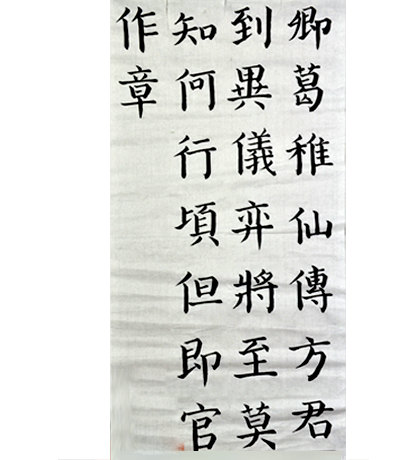 卿葛稚仙傳方君
到異儀弈將至莫
知何行頃但即官
作章